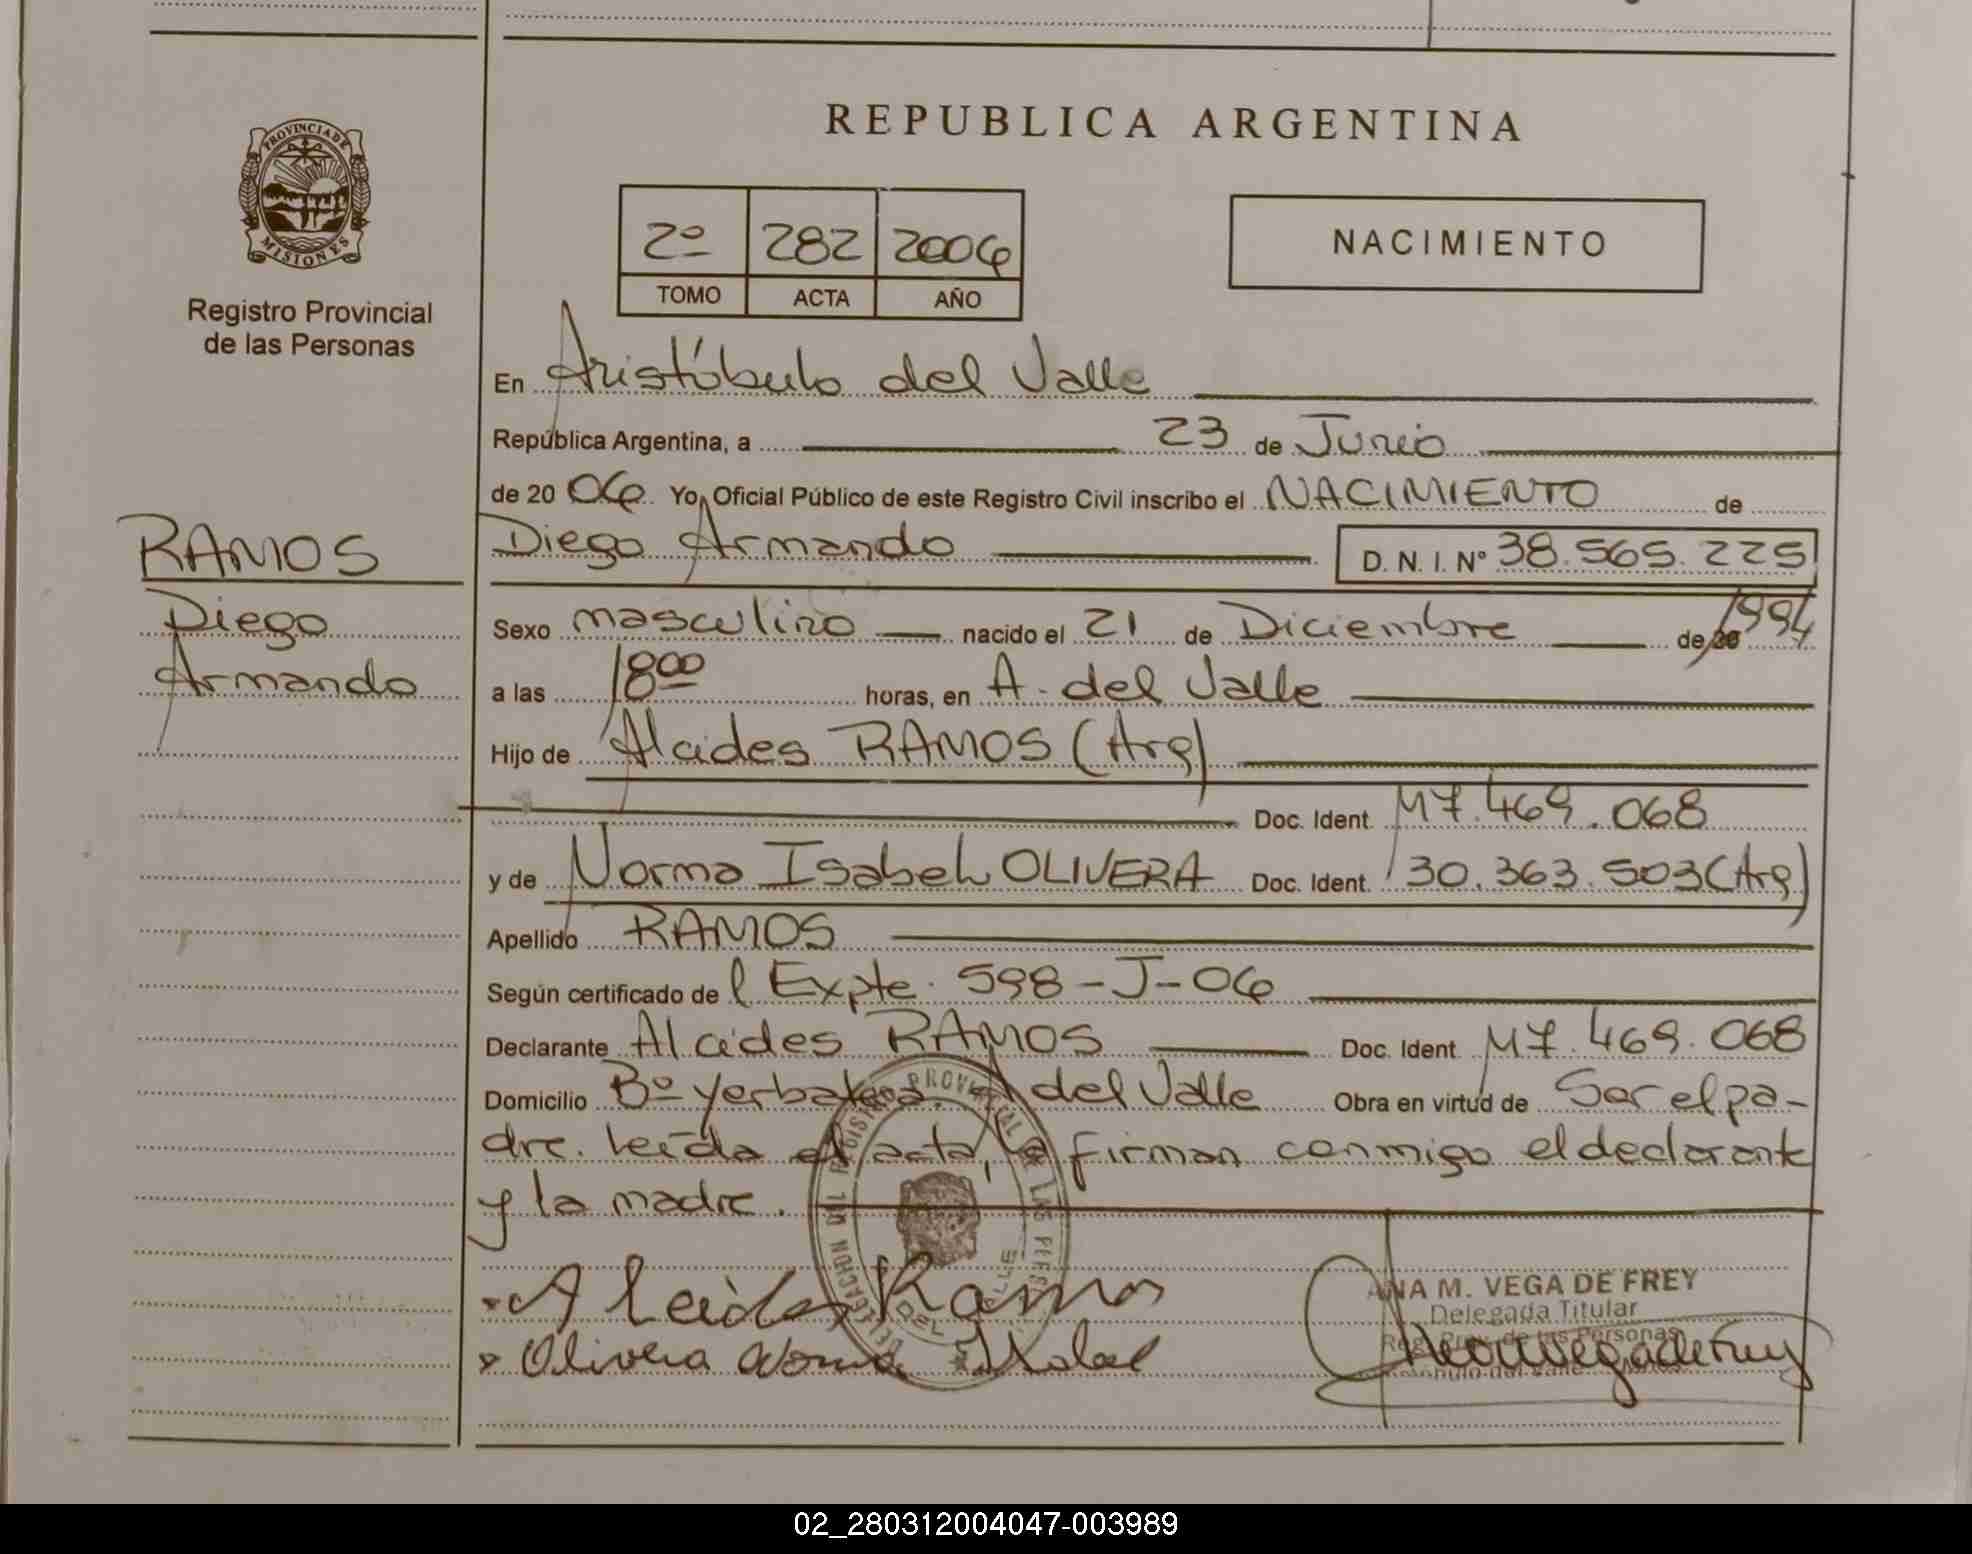 REPUBLICA ARGENTINA
PROVINCIA DE
MISIONES
Registro Provincial
de las Personas
2º 282 2006
TOMO ACTA AÑO
NACIMIENTO
En Aristóbulo del Valle
República Argentina, a 23 de Junio
de 20 06 Yo, Oficial Público de este Registro Civil inscribo el NACIMIENTO de
RAMOS
Diego
Armando
Diego Armando D. N. I. Nº 38.565.225
Sexo masculino nacido el 21 de Diciembre de 20 1994
a las 18 00 horas, en A. del Valle
Hijo de Alcides RAMOS (Arg)
Doc. Ident. M7.469.068
y de Norma Isabel OLIVERA Doc. Ident. 30.363.503 (Arg)
Apellido RAMOS
Según certificado de l Expte. 598-J-06
Declarante Alcides RAMOS Doc. Ident. M7.469.068
Domicilio Bº Yerbatero. A del Valle Obra en virtud de Ser el pa-
dre. leída el acta, la firman conmigo el declarante
y la madre.
Alcides Ramos
Olivera Norma Isabel
ANA M. VEGA DE FREY
Delegada Titular
Reg. Prov. de las Personas
02_280312004047-003989